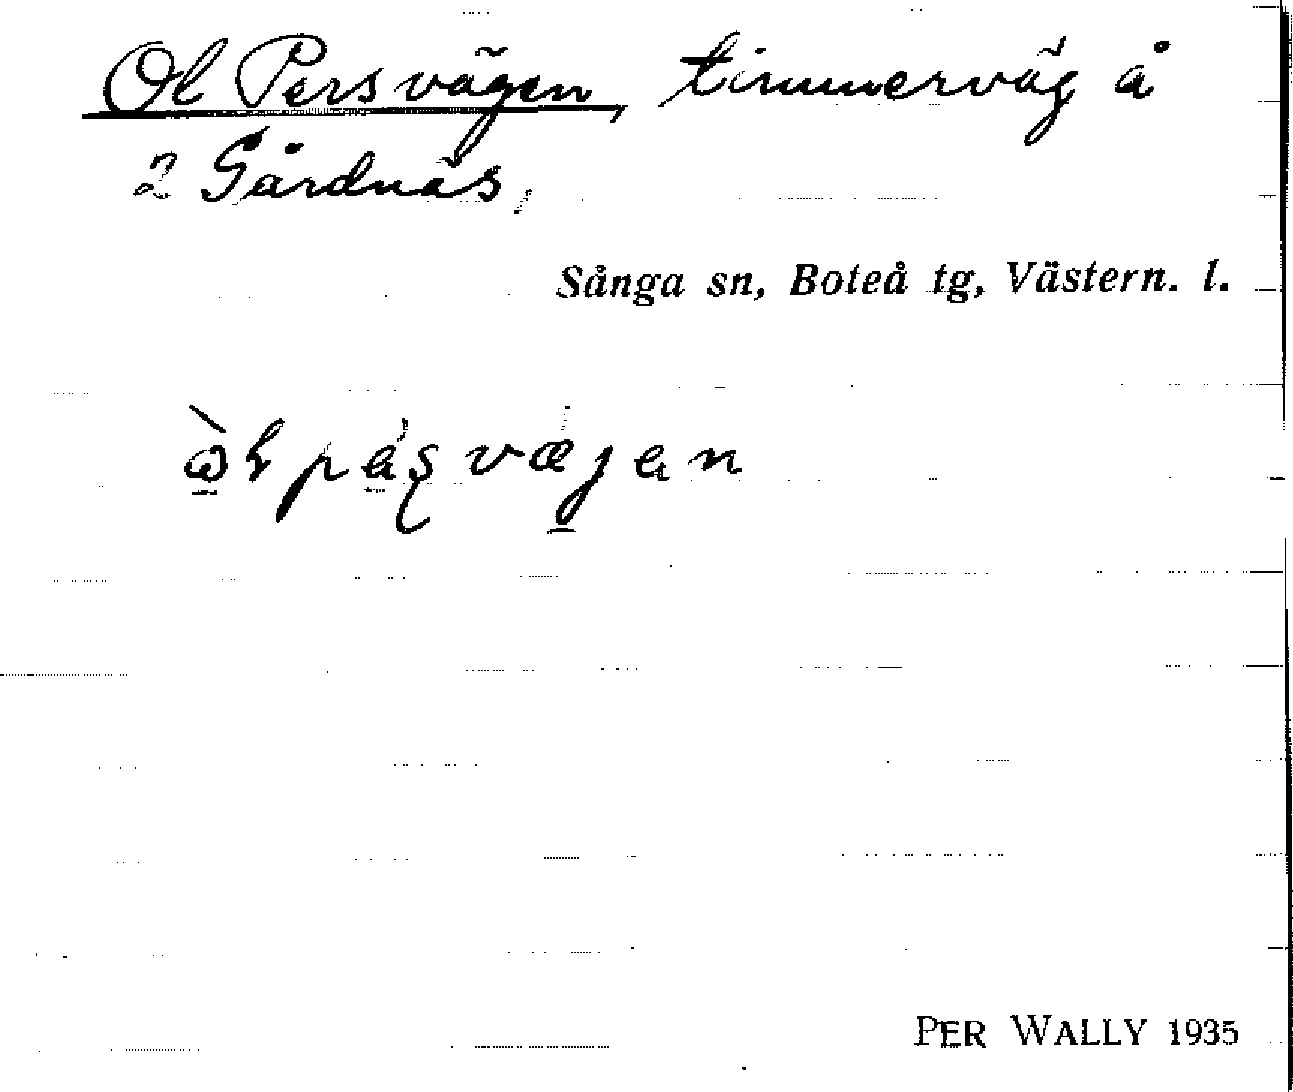 Ol Persvägen, timmerväg å
2 Gårdnäs,
Sånga sn, Boteå tg, Västern. l.
PER WALLY 1935